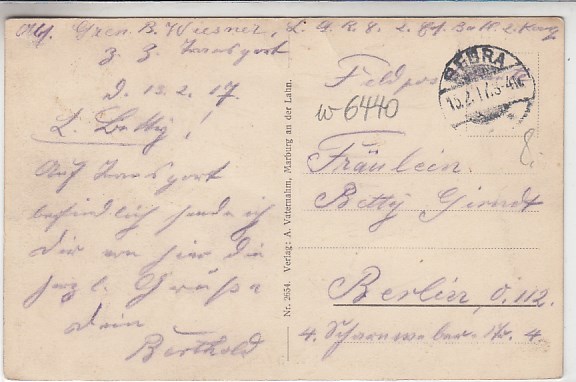 Abs. Gren. B. Wiesner, L. G. R. 8. 2. Ers. Batl. 2. Komp
z. Z. Transport
d. 13.2.17
L. Betty!
Auf Transport
befindlich sende ich
Dir von hier die
herzl. Grüße
Dein
Berthold
Nr. 2654. Verlag: A. Vaternahm, Marburg an der Lahn.
Feldpost
BEBRA
13.2.17.3-4N.
w-6440
8.-
Fräulein
Betty Girndt
Berlin, O. 112.
4. Scharnweber-Str. 4.